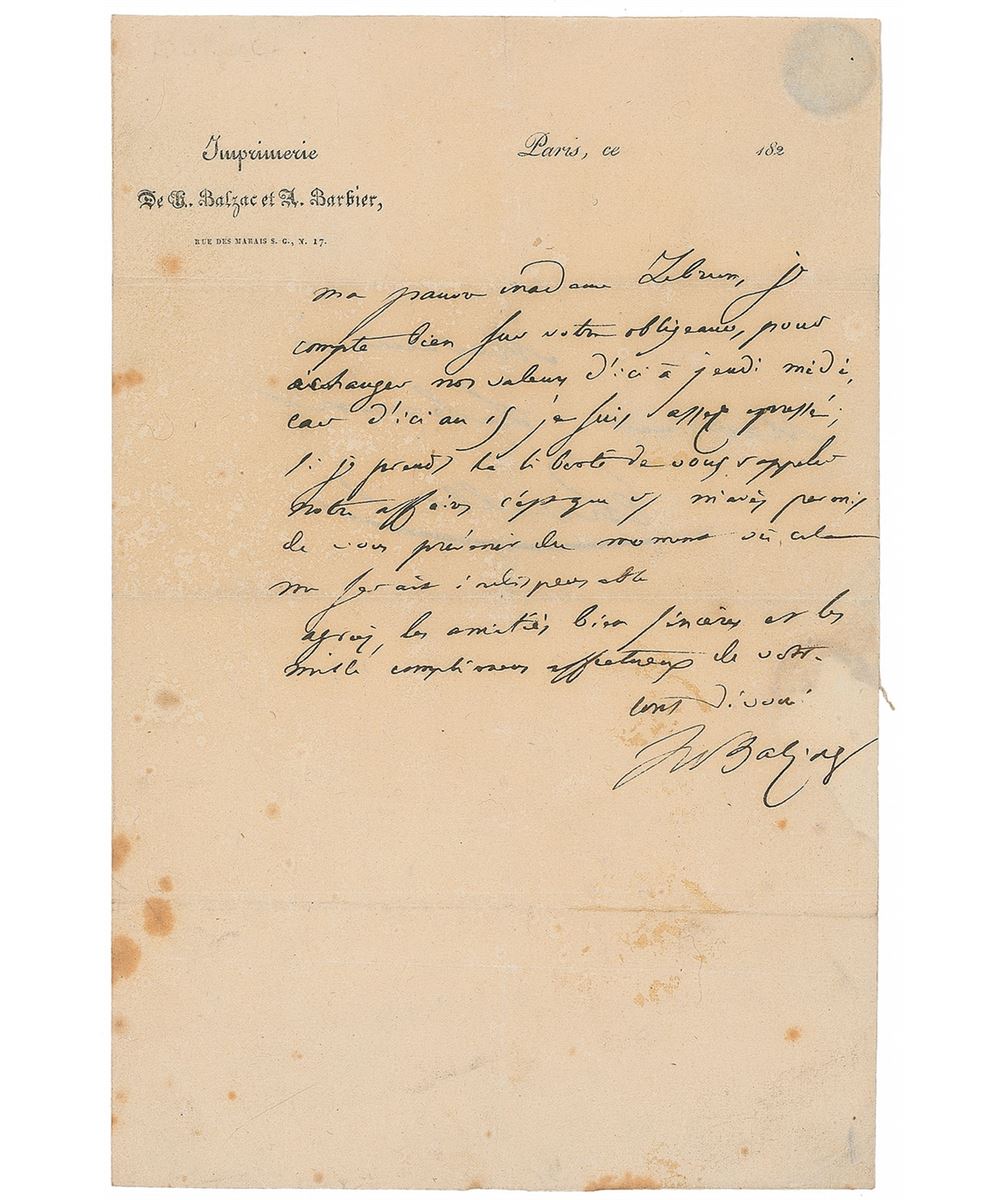 Imprimerie
Paris, ce 182
De H. Balzac et A. Barbier,
RUE DES MARAIS S. G., N. 17.
ma pauvre madame Lebrun, je
compte bien sur votre obligeance, pour
échanger nos valeurs d'ici à jeudi midi,
car d'ici au 15 je suis assez pressé;
si je prends la liberté de vous rappeler
notre affaire c'est que vs m'avez permis
de vous prévenir du moment où cela
me serait indispensable
agréez, les amitiés bien sincères et les
mille complimens affectueux de votre
tout dévoué
H Balzac